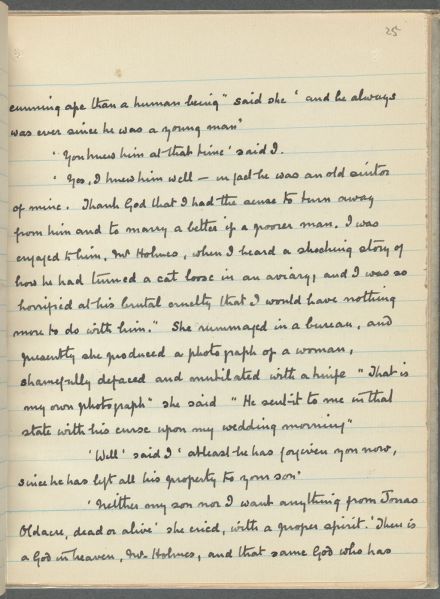 25
cunning ape than a human being" said she ' and he always
was ever since he was a young man"
' You knew him at that time' said I.
' Yes, I knew him well — in fact he was an old suitor
of mine. Thank God that I had the sense to turn away
from him and to marry a better if a poorer man. I was
engaged to him, Mr Holmes, when I heard a shocking story of
how he had turned a cat loose in an aviary, and I was so
horrified at his brutal cruelty that I would have nothing
more to do with him." She rummaged in a bureau, and
presently she produced a photograph of a woman,
shamefully defaced and mutilated with a knife "That is
my own photograph" she said "He sent it to me in that
state with his curse upon my wedding morning"
'Well' said I ' at least he has forgiven you now,
since he has left all his property to your son'
'Neither my son nor I want anything from Jonas
Oldacre, dead or alive' she cried, with a proper spirit. 'There is
a God in heaven, Mr. Holmes, and that same God who has